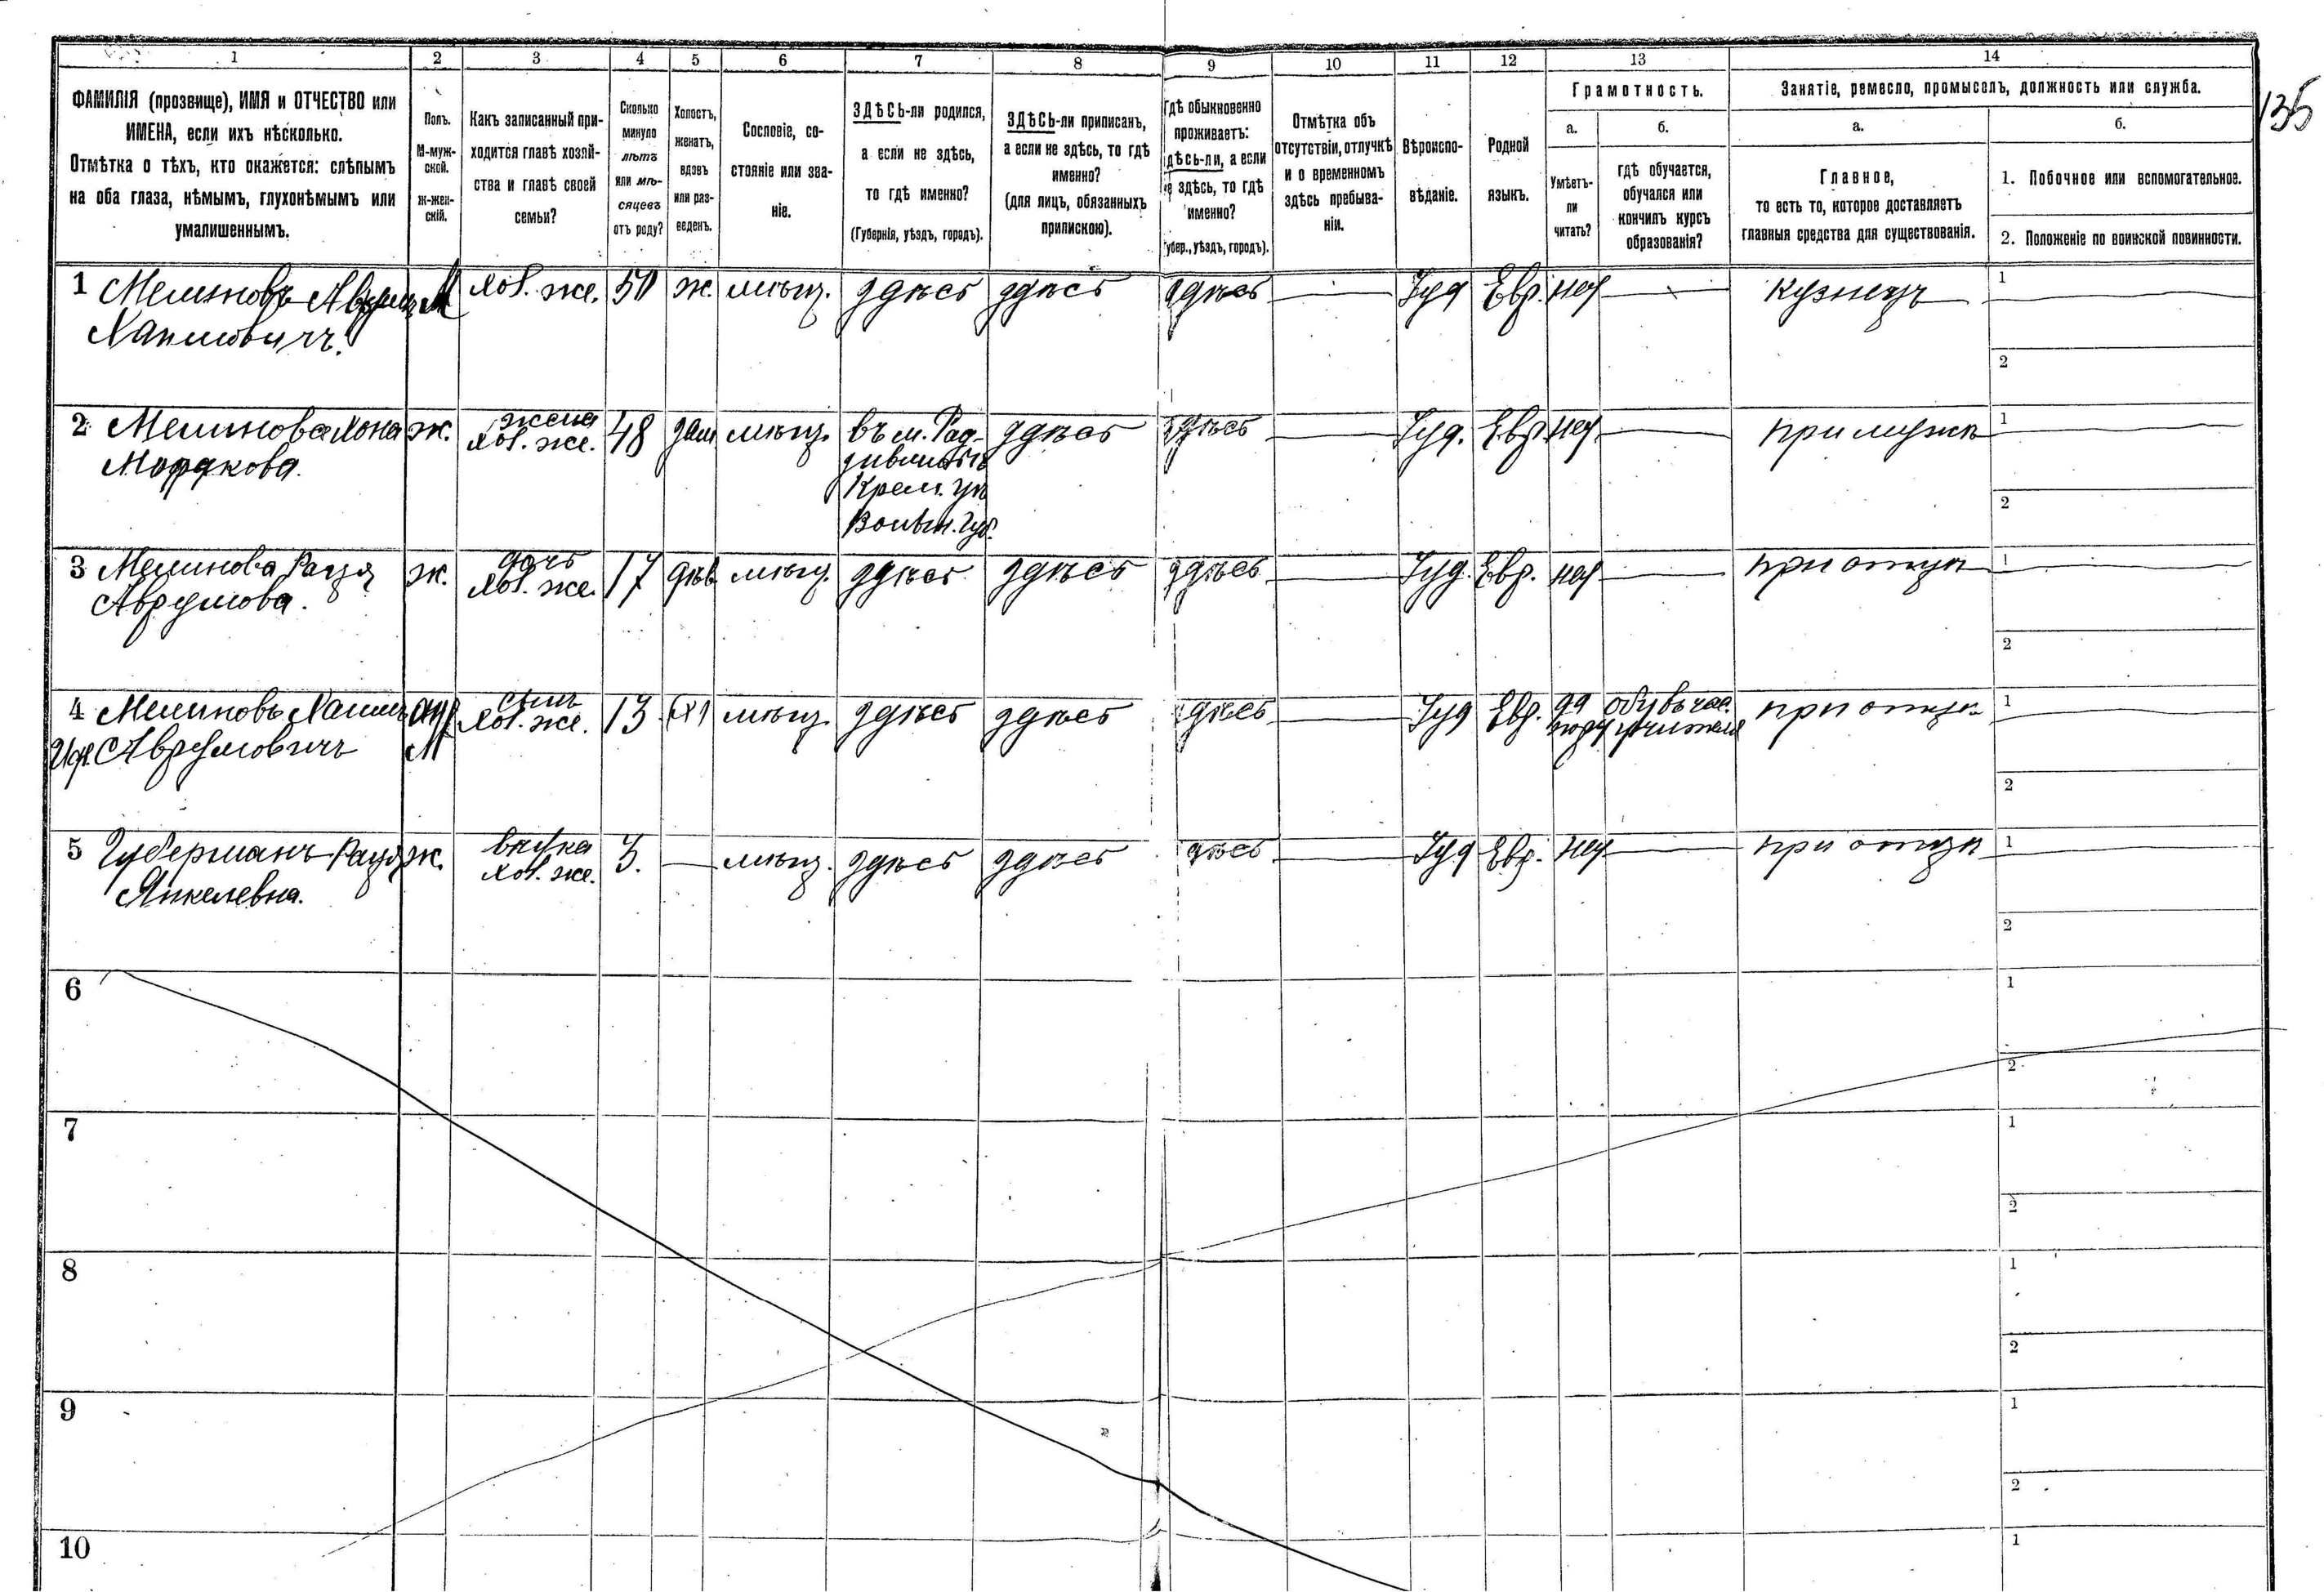 1 2 3 4 5 6 7 8 9 10 11 12 13 14
135
ФАМИЛІЯ (прозвище), ИМЯ и ОТЧЕСТВО или
ИМЕНА, если ихъ нѣсколько.
Отмѣтка о тѣхъ, кто окажется: слѣпымъ
на оба глаза, нѣмымъ, глухонѣмымъ или
умалишеннымъ.
Полъ.
М-муж-
ской.
Ж-жен-
скій.
Какъ записанный при-
ходится главѣ хозяй-
ства и главѣ своей
семьи?
Сколько
минуло
лѣтъ
или мѣ-
сяцевъ
отъ роду?
Холостъ,
женатъ,
вдовъ
или раз-
веденъ.
Сословіе, со-
стояніе или зва-
ніе.
ЗДѢСЬ-ли родился,
а если не здѣсь,
то гдѣ именно?
(Губернія, уѣздъ, городъ).
ЗДѢСЬ-ли приписанъ,
а если не здѣсь, то гдѣ
именно?
(для лицъ, обязанныхъ
припискою).
Гдѣ обыкновенно
проживаетъ:
здѣсь-ли, а если
не здѣсь, то гдѣ
именно?
Губер., уѣздъ, городъ).
Отмѣтка объ
отсутствіи, отлучкѣ
и о временномъ
здѣсь пребыва-
ніи.
Вѣроиспо-
вѣданіе.
Родной
языкъ.
Грамотность.
а.
Умѣетъ-
ли
читать?
б.
гдѣ обучается,
обучался или
кончилъ курсъ
образованія?
Занятіе, ремесло, промыселъ, должность или служба.
а.
Главное,
то есть то, которое доставляетъ
главныя средства для существованія.
б.
1. Побочное или вспомогательное.
2. Положеніе по воинской повинности.
1 Мешковъ Аврумъ М хоз. же. 50 ж. мѣщ. здѣсь здѣсь здѣсь Іуд Евр. нет кузнецъ 1
Хаимовичъ.
2
2 ж. жена 48 зам мѣщ. въ м. Рад- здѣсь здѣсь Іуд. Евр нет при мужѣ 1
Мордкова. хоз. же. зивиловѣ
Крем. уѣ 2
Волын. Губ.
3 ж. дочь 17 дѣв мѣщ. здѣсь здѣсь здѣсь Іуд. Евр. нет при отцѣ 1
Аврумова. хоз. же.
2
4 сынъ 13 мѣщ. здѣсь здѣсь здѣсь Іуд Евр. да при отцѣ 1
Аврумовичъ М хоз. же. учителя
2
5 Губерманъ ж. внука 3. мѣщ. здѣсь здѣсь здѣсь Іуд Евр. нет при отцѣ 1
Янкелевна. хоз. же.
2
6 1
2
7 1
2
8 1
2
9 1
2
10 1